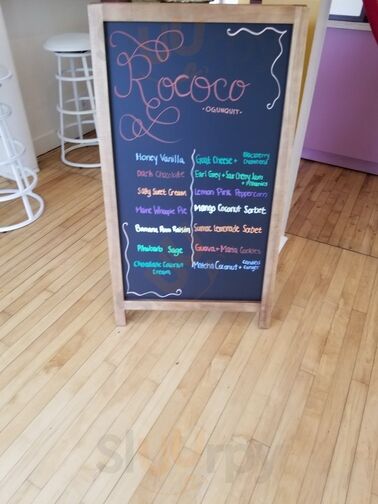 Rococo
- OGUNQUIT -
Honey Vanilla
Dark Chocolate
Salty Sweet Cream
Maine Whoopie Pie
Banana Rum Raisin
Rhubarb Sage
Chocolate Coconut
Cream
Goat Cheese + Blackberry
Chambord
Earl Grey + Sour Cherry Jam
+ Pistachios
Lemon Pink Peppercorn
Mango Coconut Sorbet
Sumac Lemonade Sorbet
Guava + Maria Cookies
Matcha Coconut + candied
ginger